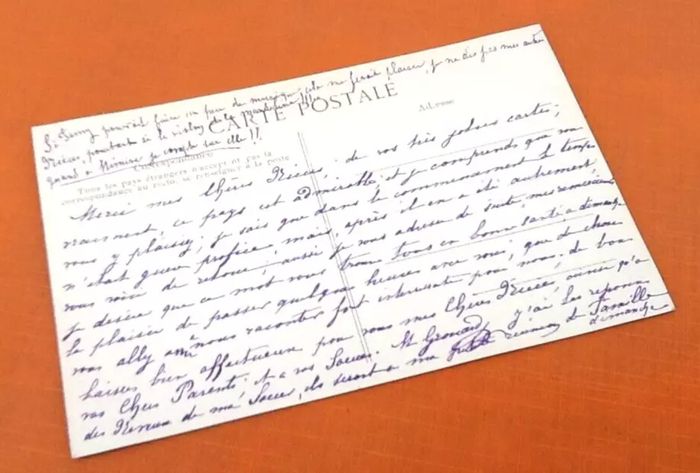 Si Jenny pouvait faire un peu de musique, cela me ferait plaisir, je ne dis pas mes autres
Nièces, pourtant si le violon de la
quand à Hermine je compte sur elle !!
CARTE POSTALE
Correspondance
Adresse
Tous les pays étrangers n'acceptent pas la
correspondance au recto, se renseigner à la poste
Merci mes Chères Nièces, de vos très jolies cartes,
vraiment, ce pays est admirable, et je comprends que vous
vous y plaisiez, je sais que dans le commencement le temps
n'était guère propice, mais, après il en a été autrement,
vous voici de retour, aussi je vous adresse de suite, mes remerciements
je désire que ce mot vous trouve tous en bonne santé à dimanche
le plaisir de passer quelques heures avec vous, que de choses
vous allez à nous raconter fort intéressante pour nous, de bons
baisers bien affectueux pour vous mes Chères Nièces, ainsi qu'à
vos Chers Parents, et à vos Soeurs. j'ai les réponses
des Neveux de ma Soeur, ils seront à ma réunion de Famille
dimanche